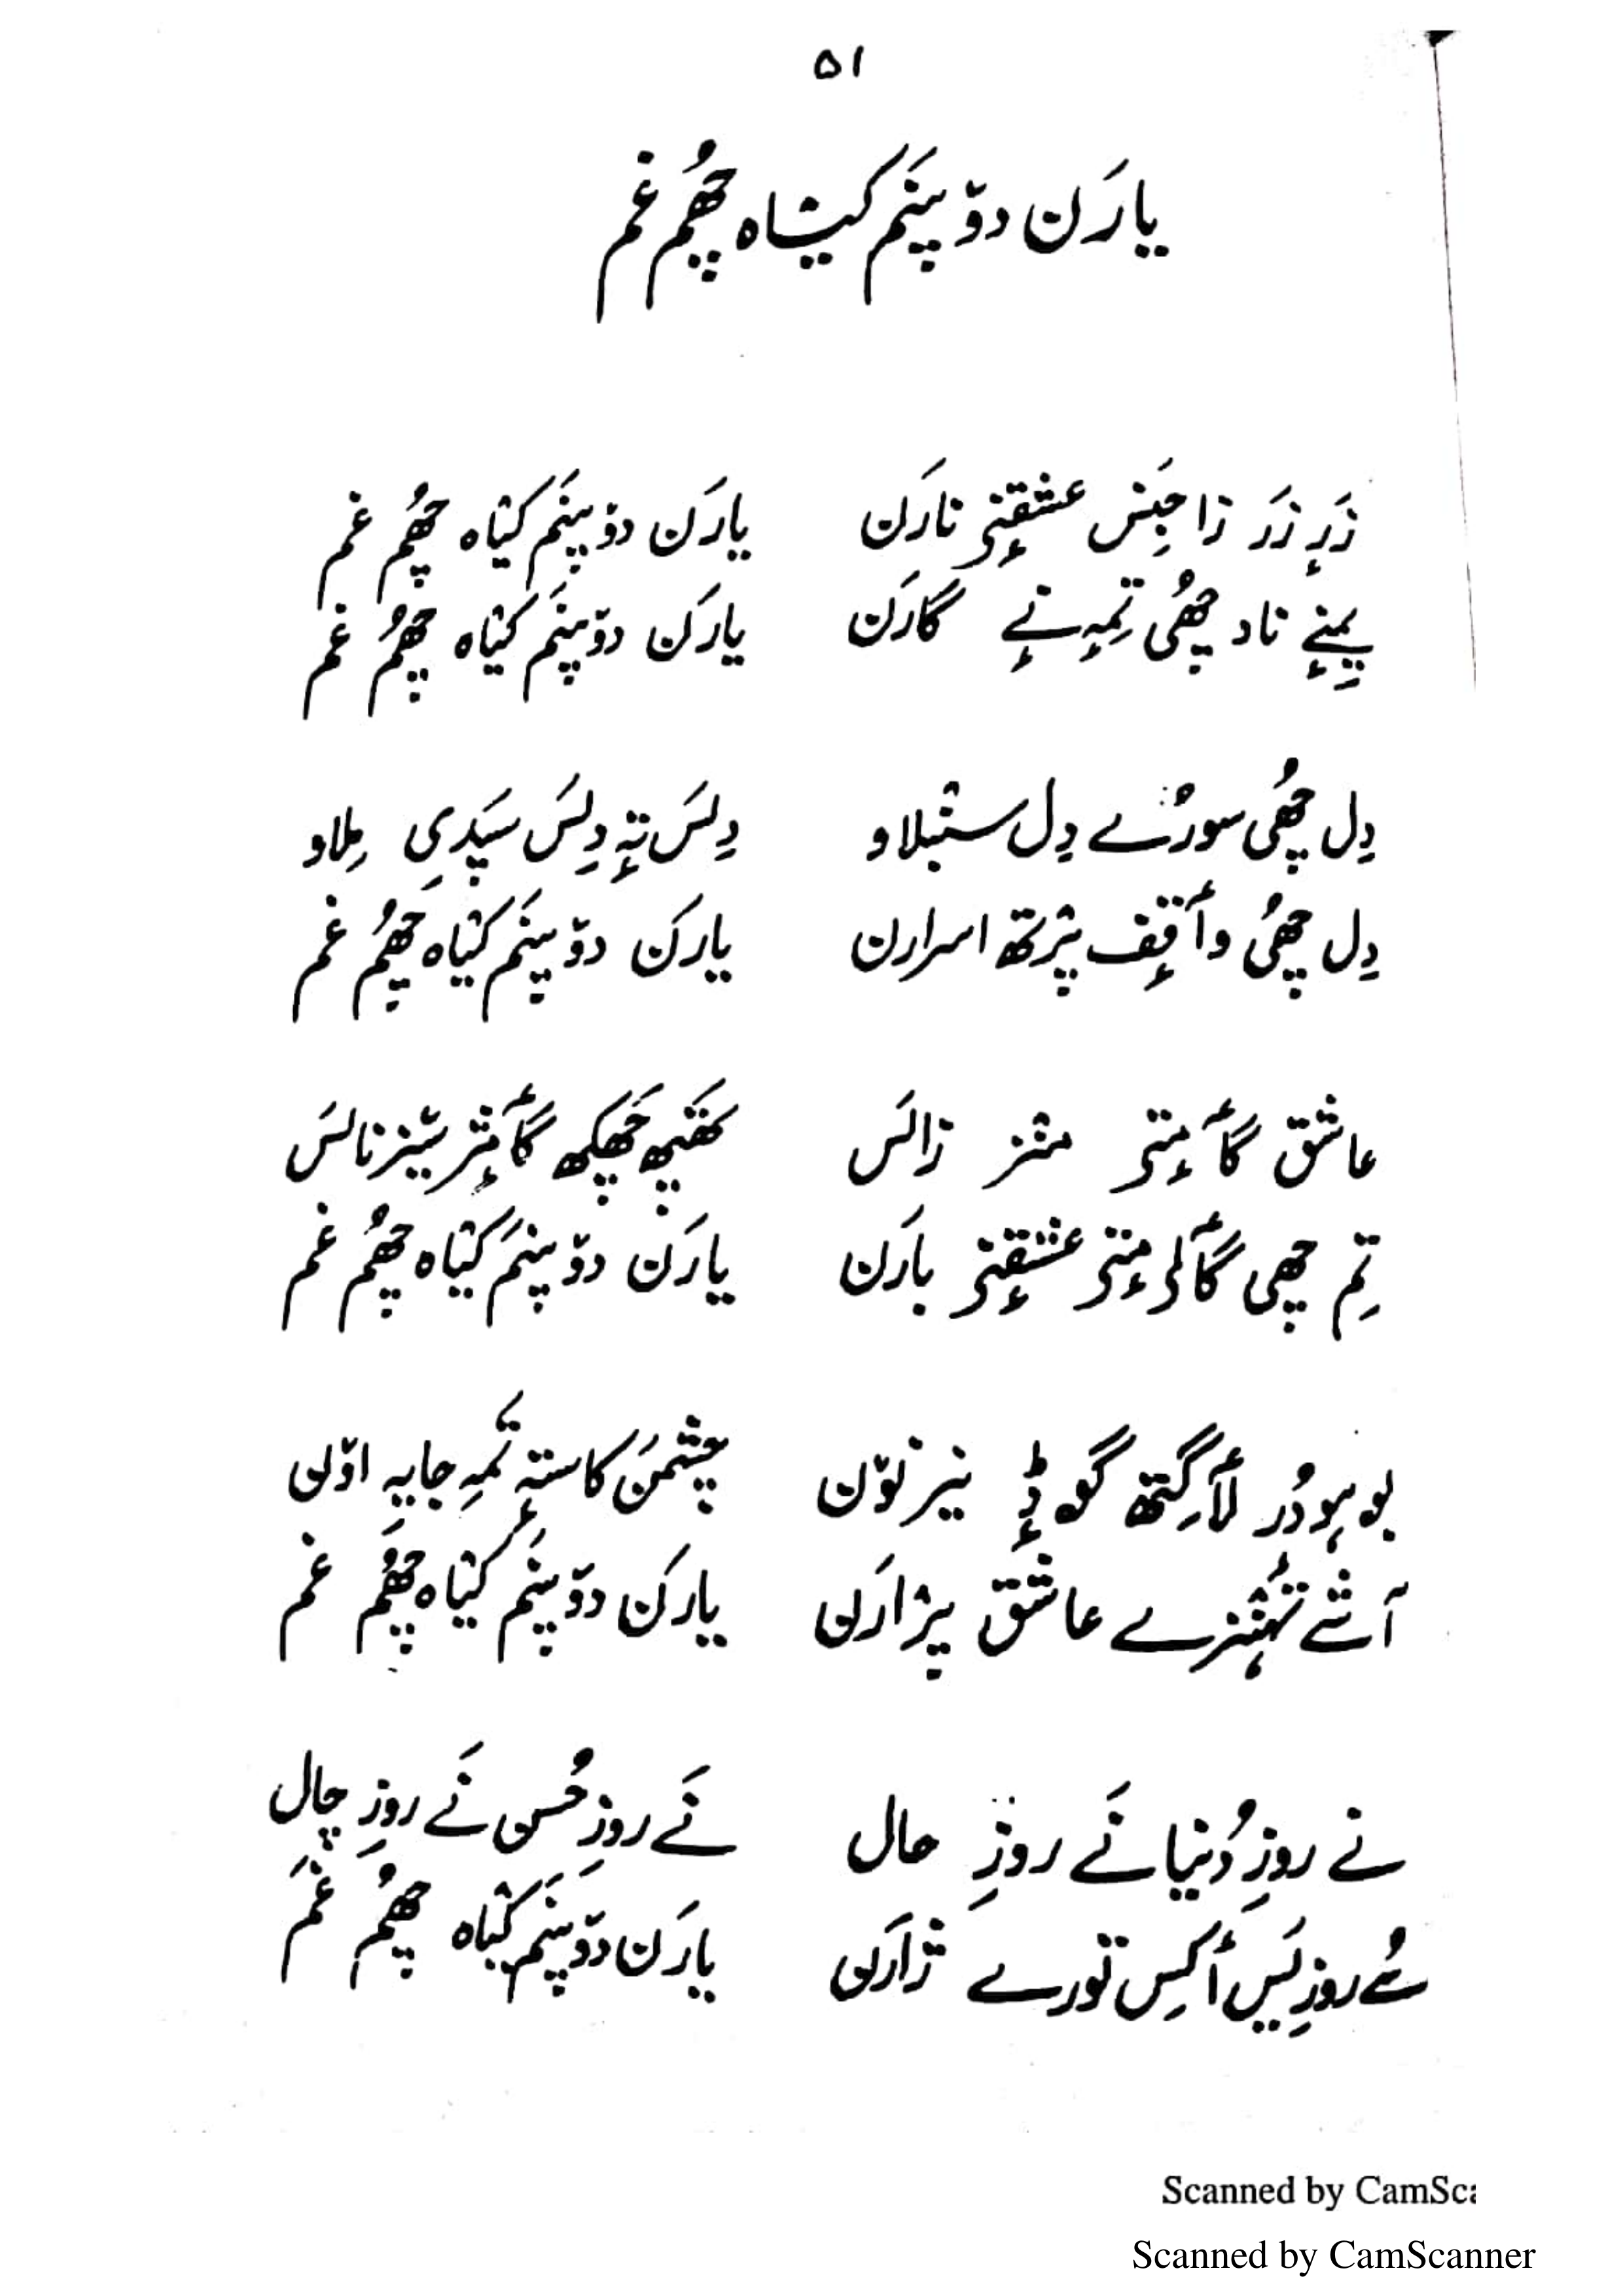 ۵۱
یارَن دوٚپنَم کیٛاہ چھُم غم
زَرٕ زَرَ زٲجِنَس عشقٕنۍ نارَن یارَن دوٚپنَم کیٛاہ چھُم غم
یِمنٕے ناد چھُی تِمہٕ نٕے گارَن یارَن دوٚپنَم کیٛاہ چھُم غم
دِل چھُی سورُے دِل سنٛبلاو دِلسَ تہٕ دِلسَ سَپدِی مِلاو
دِل چھُی وٲقِف پرٛتھ اسرارن یارَن دوٚپنَم کیٛاہ چھُم غم
عاشق گٲمٕتۍ منٛز زالسَ
تِم چھی گٲلۍ مٕتۍ عشقٕنۍ بارَن یارَن دوٚپنَم کیٛاہ چھُم غم
دُر لٲگِتھ گوڈٕ نیر نوٚن چشمنَ کاستہٕ تَمہِ جایہِ اوٚن
تہٕنٛزے عاشق پرٛارَن یارَن دوٚپنَم کیٛاہ چھُم غم
نے روزِ دُنیا نَے روزِ حال نَے روزِ حُسن نَے روزِ چال
سُے روزِ یَس أکِس تورے ژارَن یارَن دوٚپنَم کیٛاہ چھُم غَم
Scanned by CamSca
Scanned by CamScanner